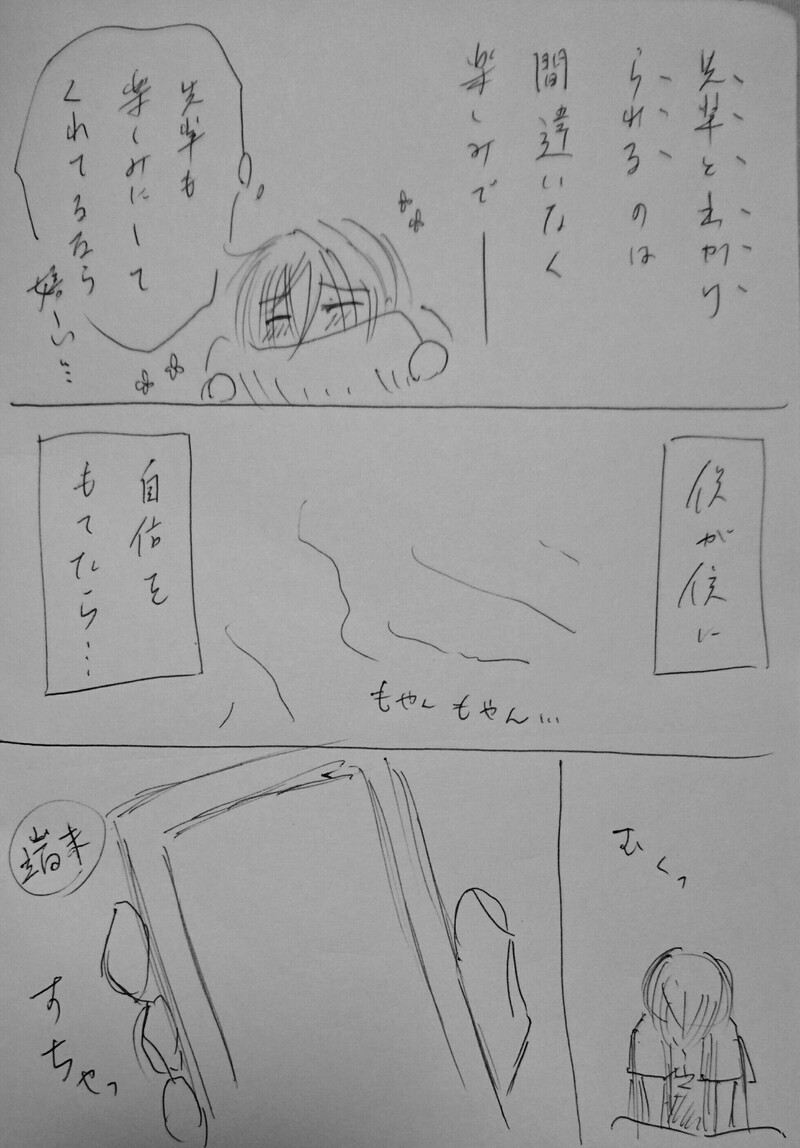 先輩と出かけ
られるのは
間違いなく
楽しみで
先輩も
楽しみにして
くれてるなら
嬉しい…
僕が僕に
自信を
もてたら…
もやん もやん…
むくっ
端末
すちゃっ